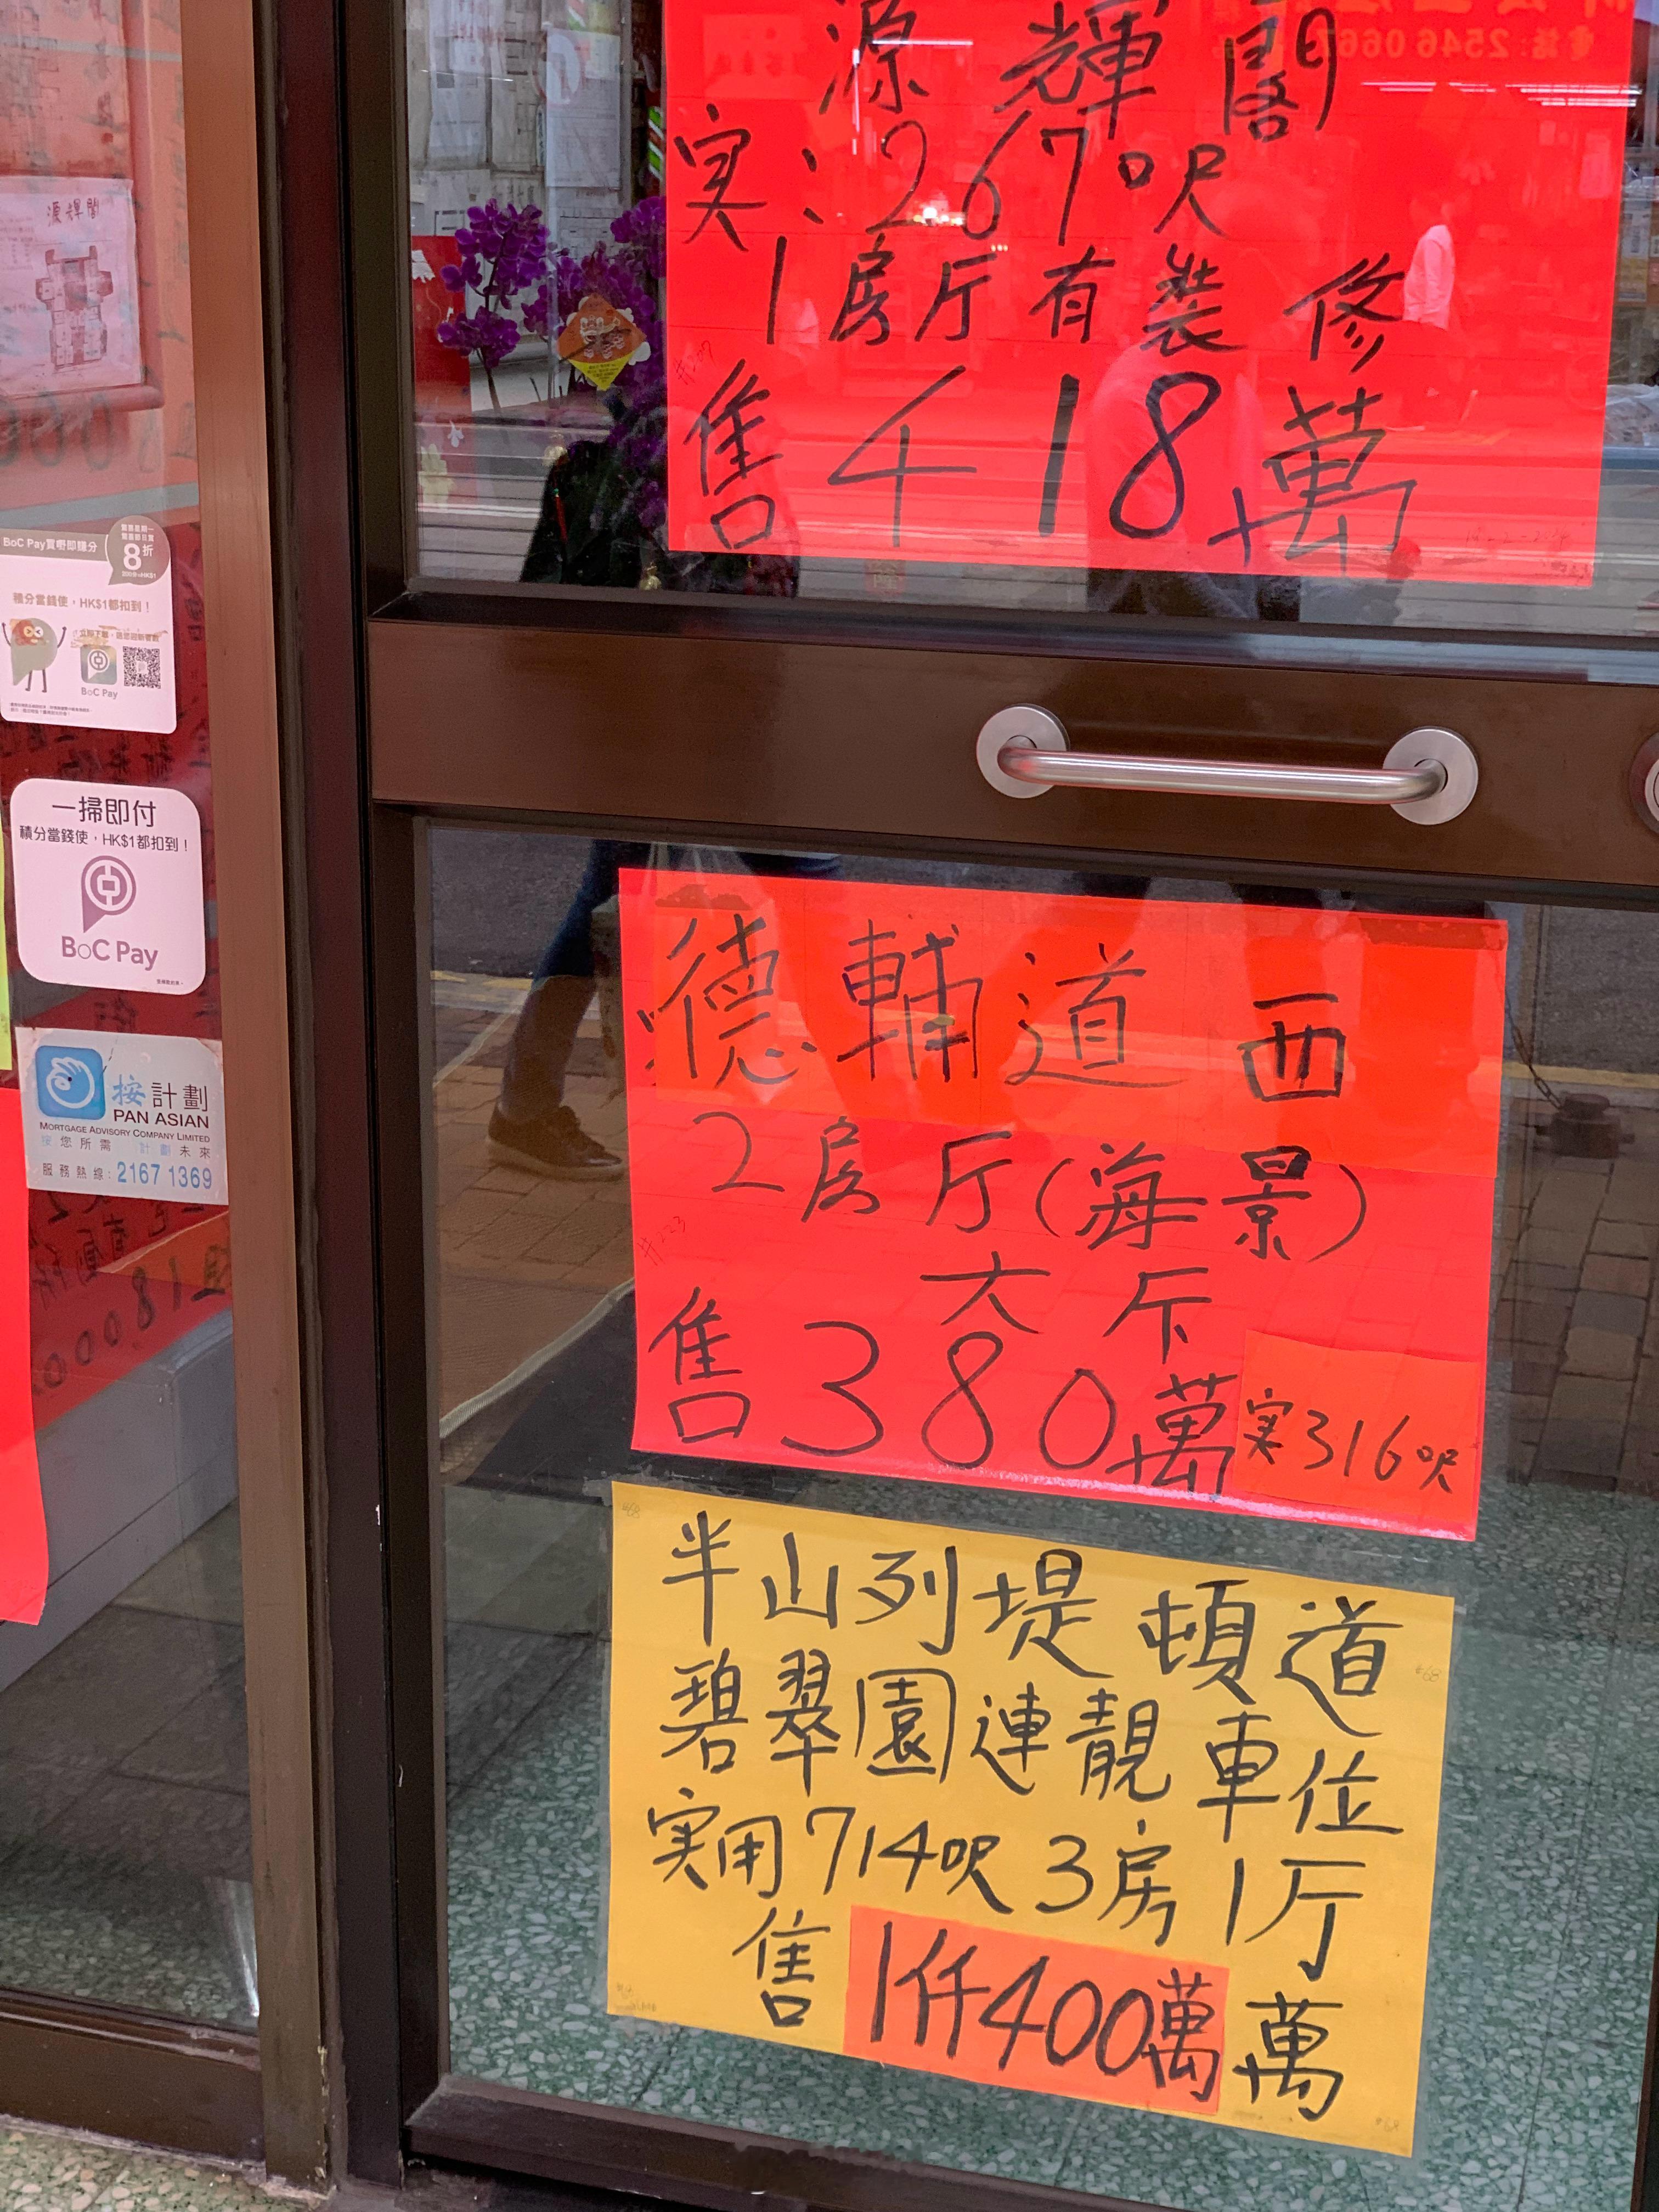 源輝閣
実：267呎
1房厅有裝修
售418萬
電話: 2546 066
源輝閣
BoC Pay買嘢即賺分
8折
積分當錢使，HK$1都扣到！
BoC Pay
一掃即付
積分當錢使，HK$1都扣到！
BoC Pay
按計劃
PAN ASIAN
MORTGAGE ADVISORY COMPANY LIMITED
按您所需 計劃未來
服務熱線: 2167 1369
德輔道西
2房厅(海景)
大厅
售380萬
実316呎
半山列堤頓道
碧翠園連靚車位
実用714呎3房1厅
售1仟400萬萬